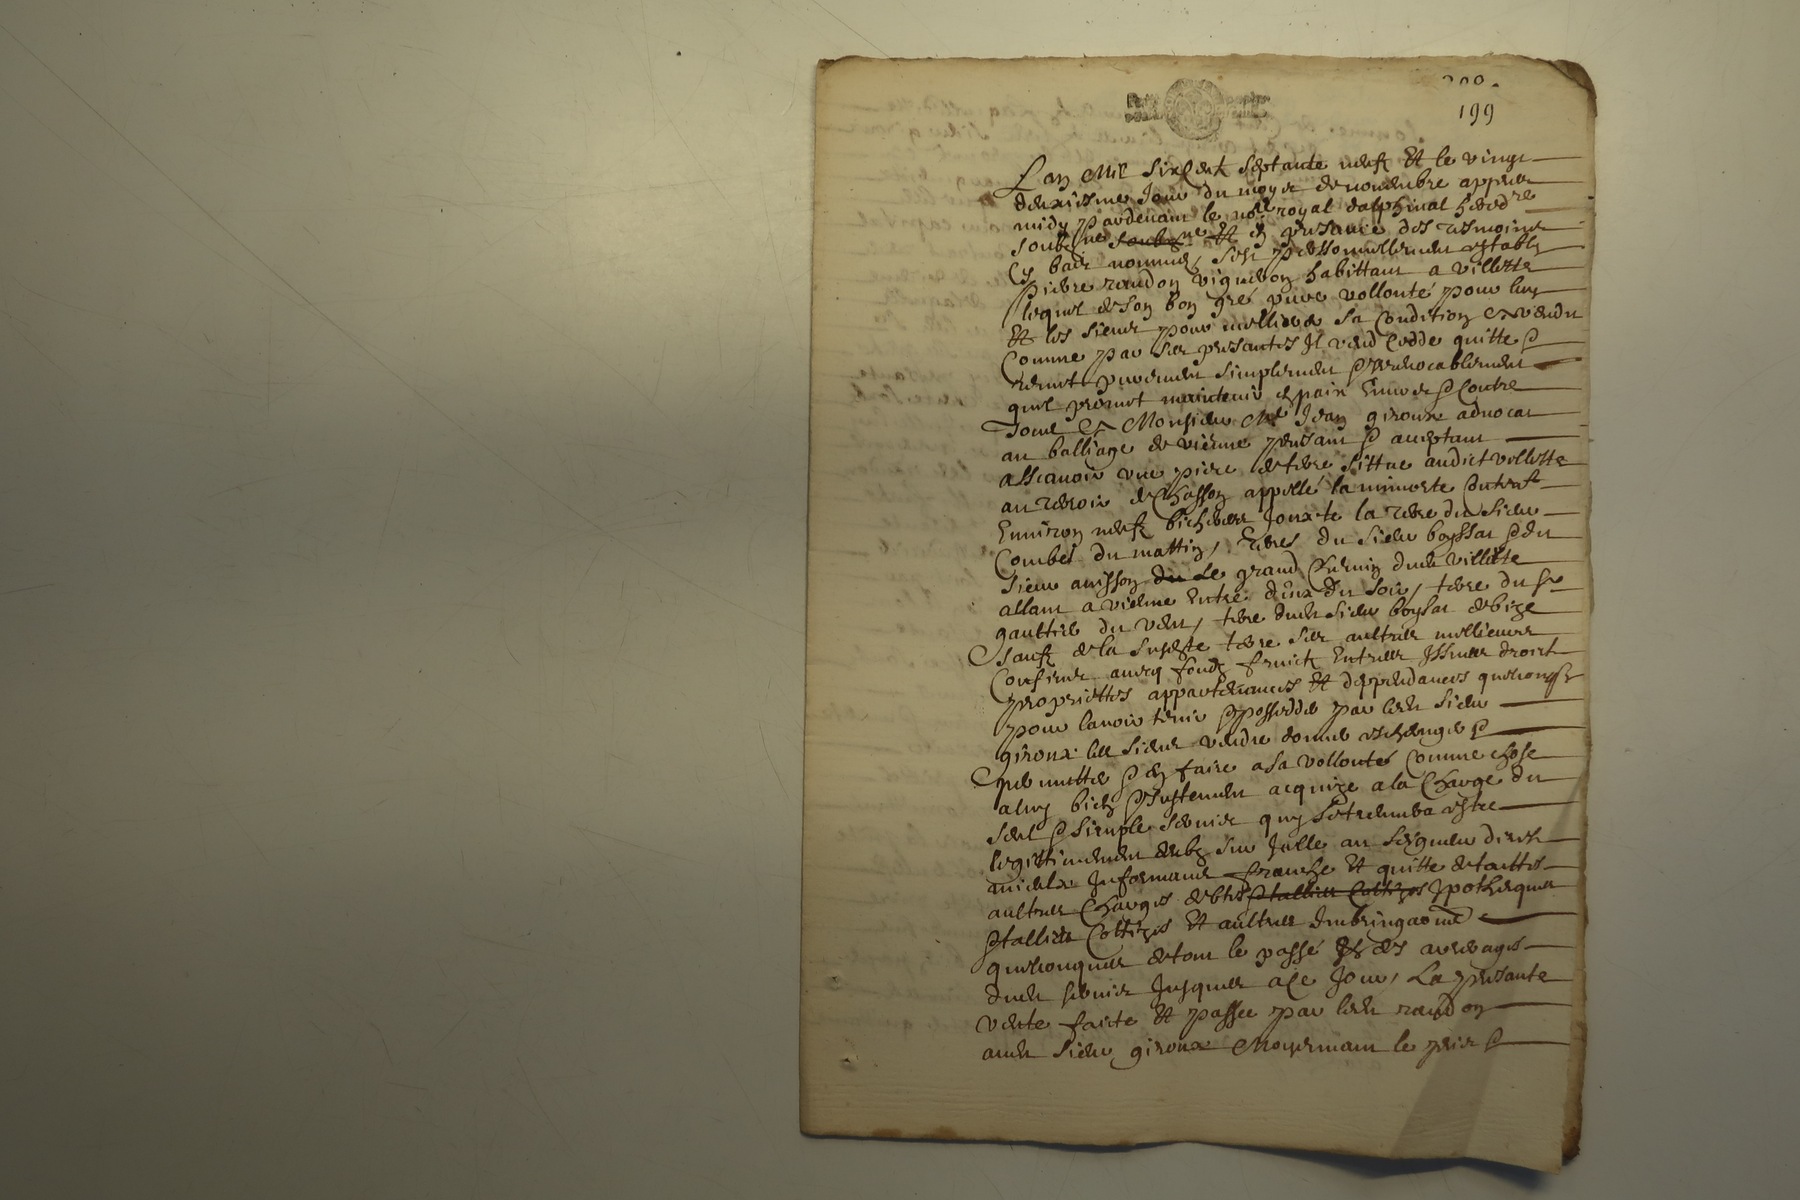 199
Lan mil six cent septante neufz et le vingt
deuxiesme jour du moys de novembre appres
midy pardevant le nore royal dalphinal heredre
soubzne soubzne et en presance des tesmoins
cy bas nommes, sest personnellement estably
pierre randon vigneron habittant a villette
lequel de son bon gré pure vollonté pour luy
et les siens pour meilleure sa condition a vendu
comme par ses presantes il vend cedde quitte &
remet purement simplement & irrevocablement
quil promet maintenir en paix envers & contre
tous a Monsieur Me Jean giroux advocat
au balliage de vienne presant & aceptant
assavoir une piece de terre sittue audict villette
au terroir de chasson appellé la mimorte contente
environ neufz bicherees jouxte la terre du sieur
combet du mattin, terres du sieur boyssat & du
sieur anisson du le grand chemin dudt villette
allant a vienne entre deux du soir, terre du sr
gauttier du vent, terre dudt sieur boysat de bize
sauf de la susdte terre ses aultres meilleures
confines avecq fondz fruictz entrees issues droict
proprietes appartenances et deppendances quelconqs
pour lavoir tenir & posseder par ledt sieur
giroux les siens vendre donner eschanger &
permutter & en faire a sa vollonté comme chose
a luy bien & justement acquize a la charge du
seul & simple servis quy se treuvera estre
legittimement deub sur Jcelle au seigneur direct
mieulx informant franche et quitte de touttes
aultres charges debtes & tallies cottizes ypotheques
& tallies cottizes et aultres
quelconques de tout le passé et des arrerages
dudt servis jusques a ce jour, La presante
vente faicte et passee par ledt randon
audt sieur giroux moyennant le prix &